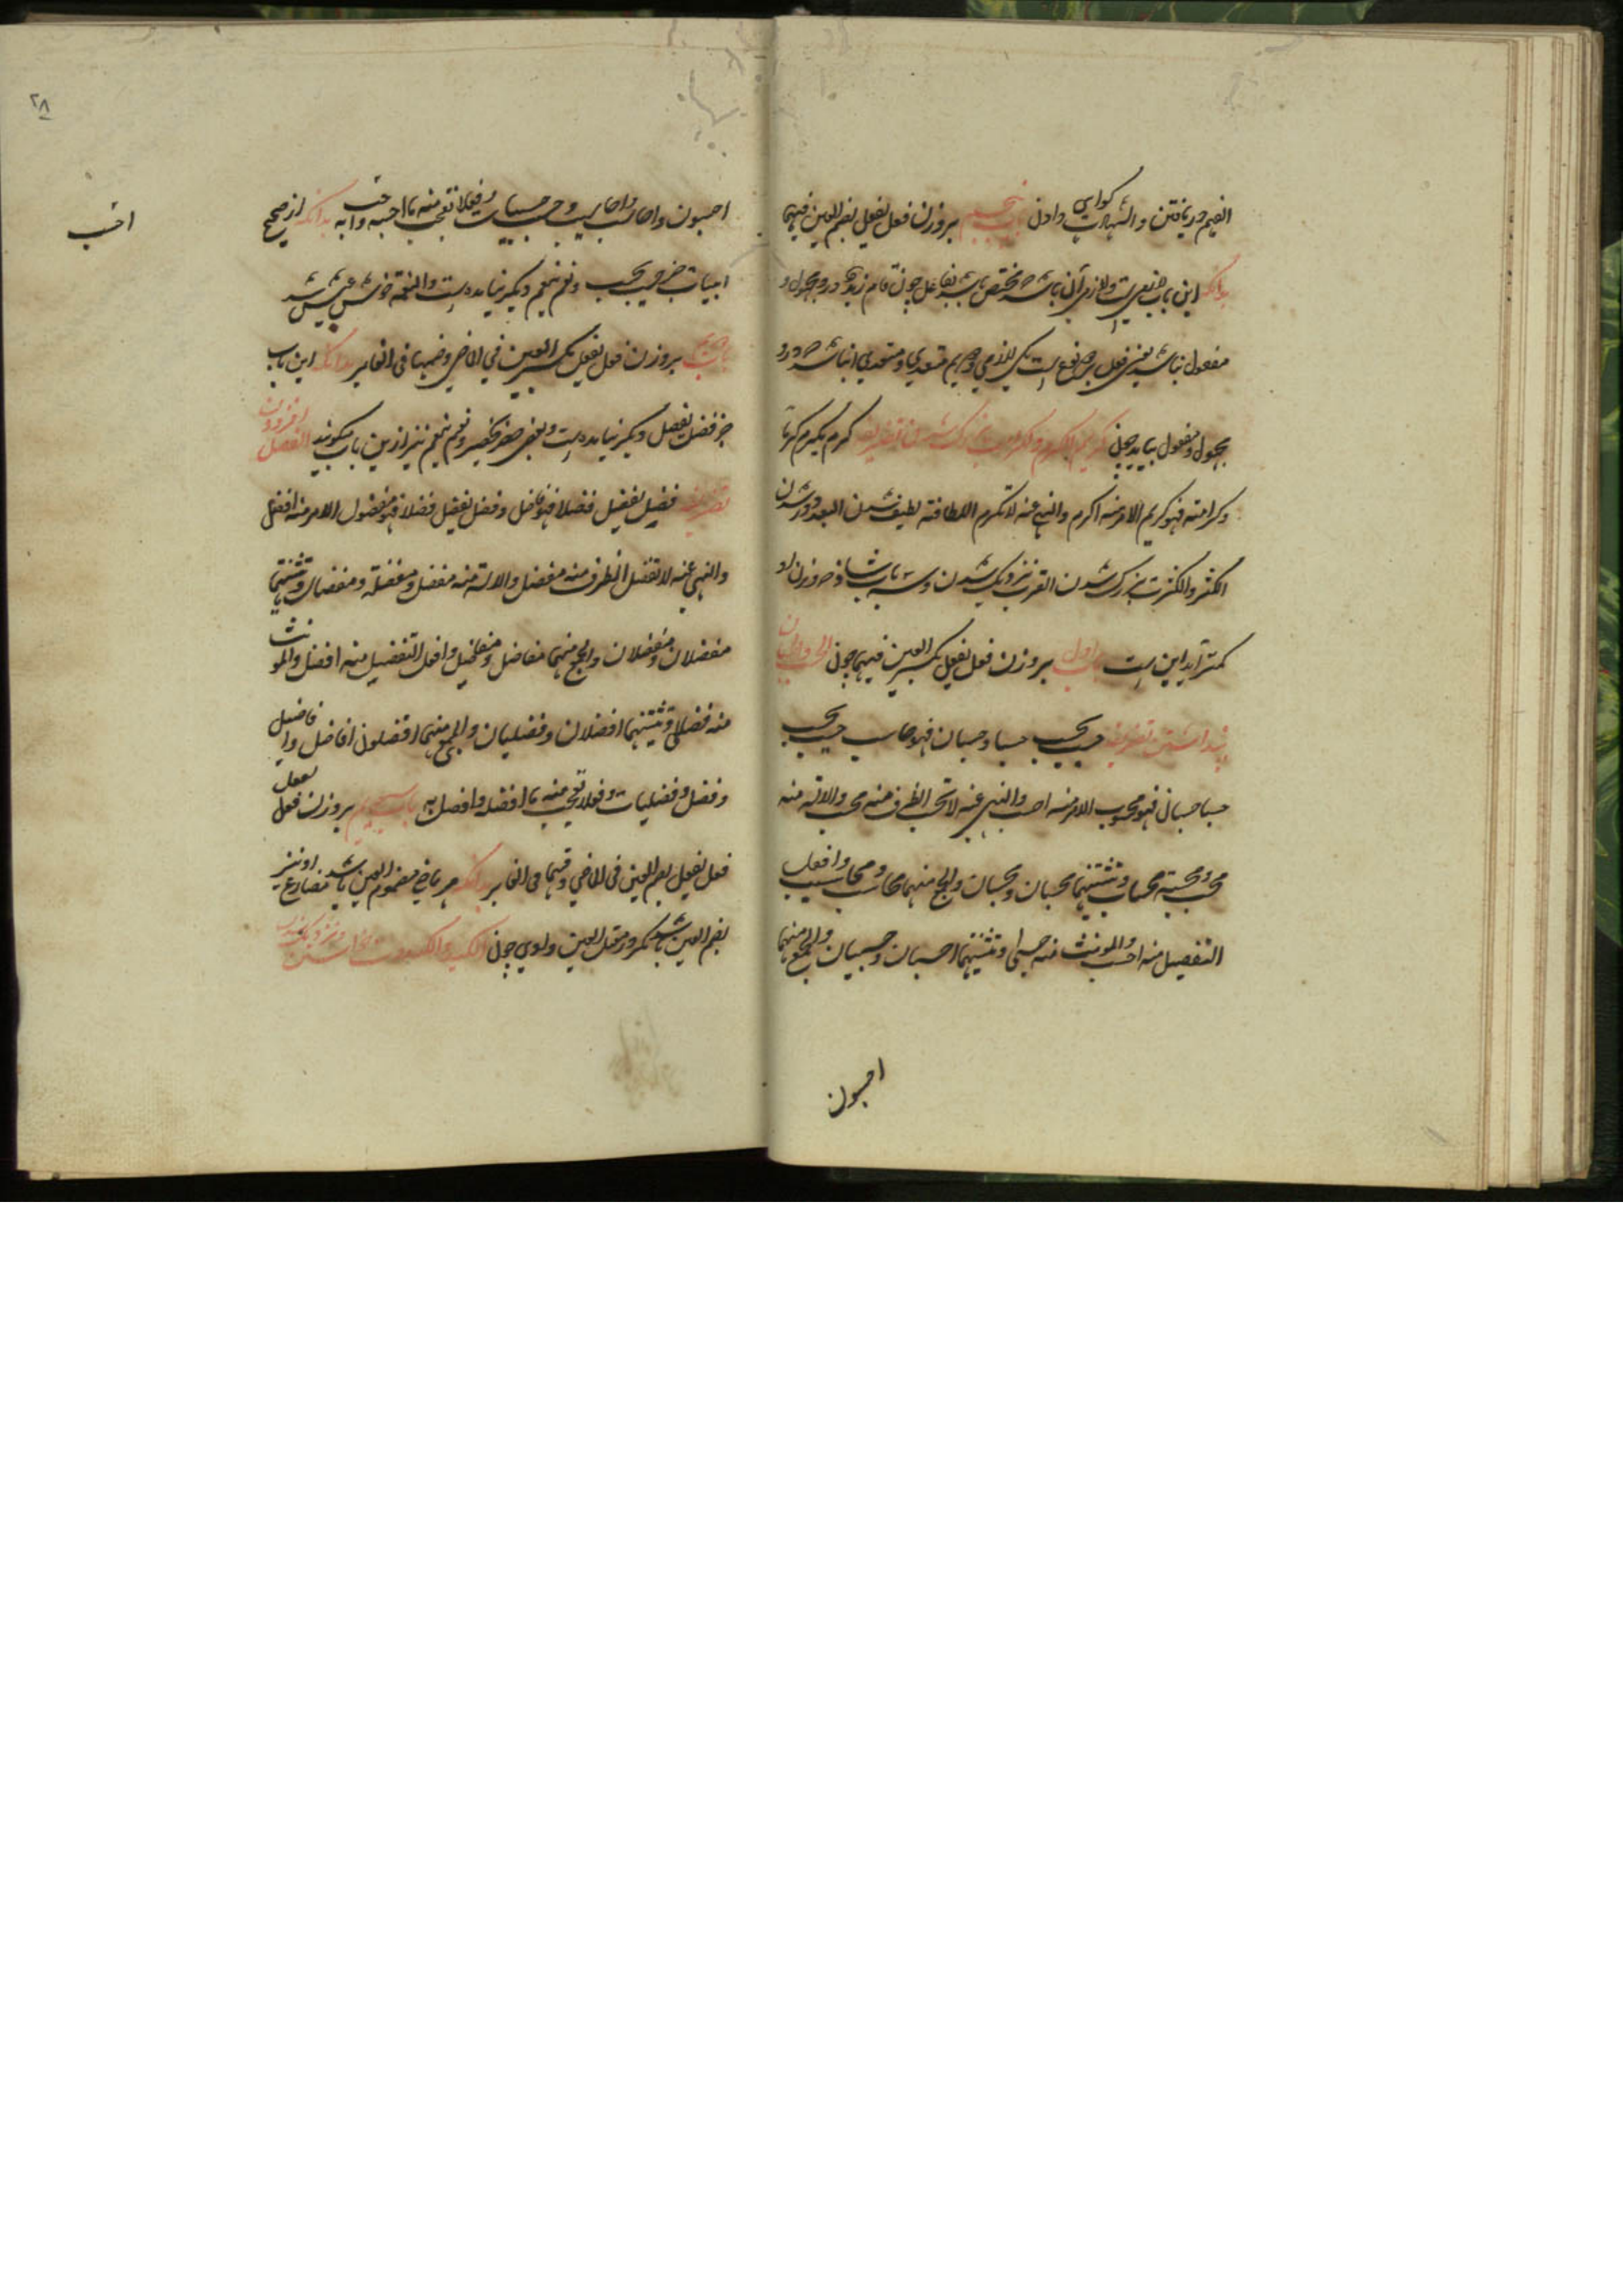 الفهم دریافتن والشهادت کواهی دادن باب پنجم بروزن فعل یفعل بضم العین فیهما
بدانکه این باب لازمی است و لازمی آن باشد که مختص باشد بفاعل چون قام زید که درو مجهول و
مفعول نباشد یعنی فعل بر دو نوع است یکی لازمی دویم متعدی و متعدی انباشد که درو
مجهول و مفعول بیاید چون کریم الکرم والکرامة بزرک شدن تصریفه کرم یکرم کرما
وکرامته فهو کریم الامر منه اکرم والنهی عنه لاتکرم اللطافته لطیف شدن البعد دور شدن
الکثر والکثرت بزرک شدن القرب نزدیک شدن وسه باب شاذ که وزن او
کمتر آید این است باب اول بروزن فعل یفعل بکسر العین فیهما چون الحسب والحسبان
پنداشتن تصریفه حسب یحسب حسبا وحسبان فهو حاسب حسب یحسب
حسبا حسبانا فهو محسوب الامر منه احسب والنهی عنه لاتحسب الظرف منه محسب والالته منه
محسب ومحسبته محساب وتثنیتهما محسبان ومحسبان والجمع منهما محاسب ومحاسیب وافعل
التفضیل منه احسب والمونث منه حسبی وتثنیتهما احسبان وحسبیان والجمع منهما
احسبون
احسبون واحاسب واحاسیب وحسب وحسبیات وفعلا تعجب منه ما احسبه واحسب به بدانکه از صحیح
ابیات جز حسب یحسب ونعم ینعم دیکر نیامده است والنعمة خوش عیش شد
باب دویم بروزن فعل یفعل بکسر العین فی الماضی وضمها فی الغابر بدانکه این باب
جز فضل یفضل دیکر نیامده است وبعضی حضر یحضر ونعم ینعم نیز ازین باب میکویند الفضل افزودن
تصریفه فضل یفضل فضلا فهو فاضل وفضل یفضل فضلا فهو مفضول الامر منه افضل
والنهی عنه لاتفضل الظرف منه مفضل والالته منه مفضل ومفضلته ومفضال وتثنیتهما
مفضلان ومفضلان والجمع منهما مفاضل ومفاضیل وافعل التفضیل منه افضل والمونث
منه فضلی وتثنیتهما افضلان وفضلیان والجمع منهما افضلون افاضل وافاضیل
وفضل وفضلیات وفعلا تعجب منه ما افضله وافضل به باب سیوم بروزن فعل یفعل
فعل یفعل بضم العین فی الماضی وفتحها فی الغابر بدانکه هر ماضی مضموم العین باشد مضارع او نیز
بضم العین باشد مکر در معتل العین واوی چون الکید والکیدودت خواستن ونزدیک شدن
احسب
٢٨